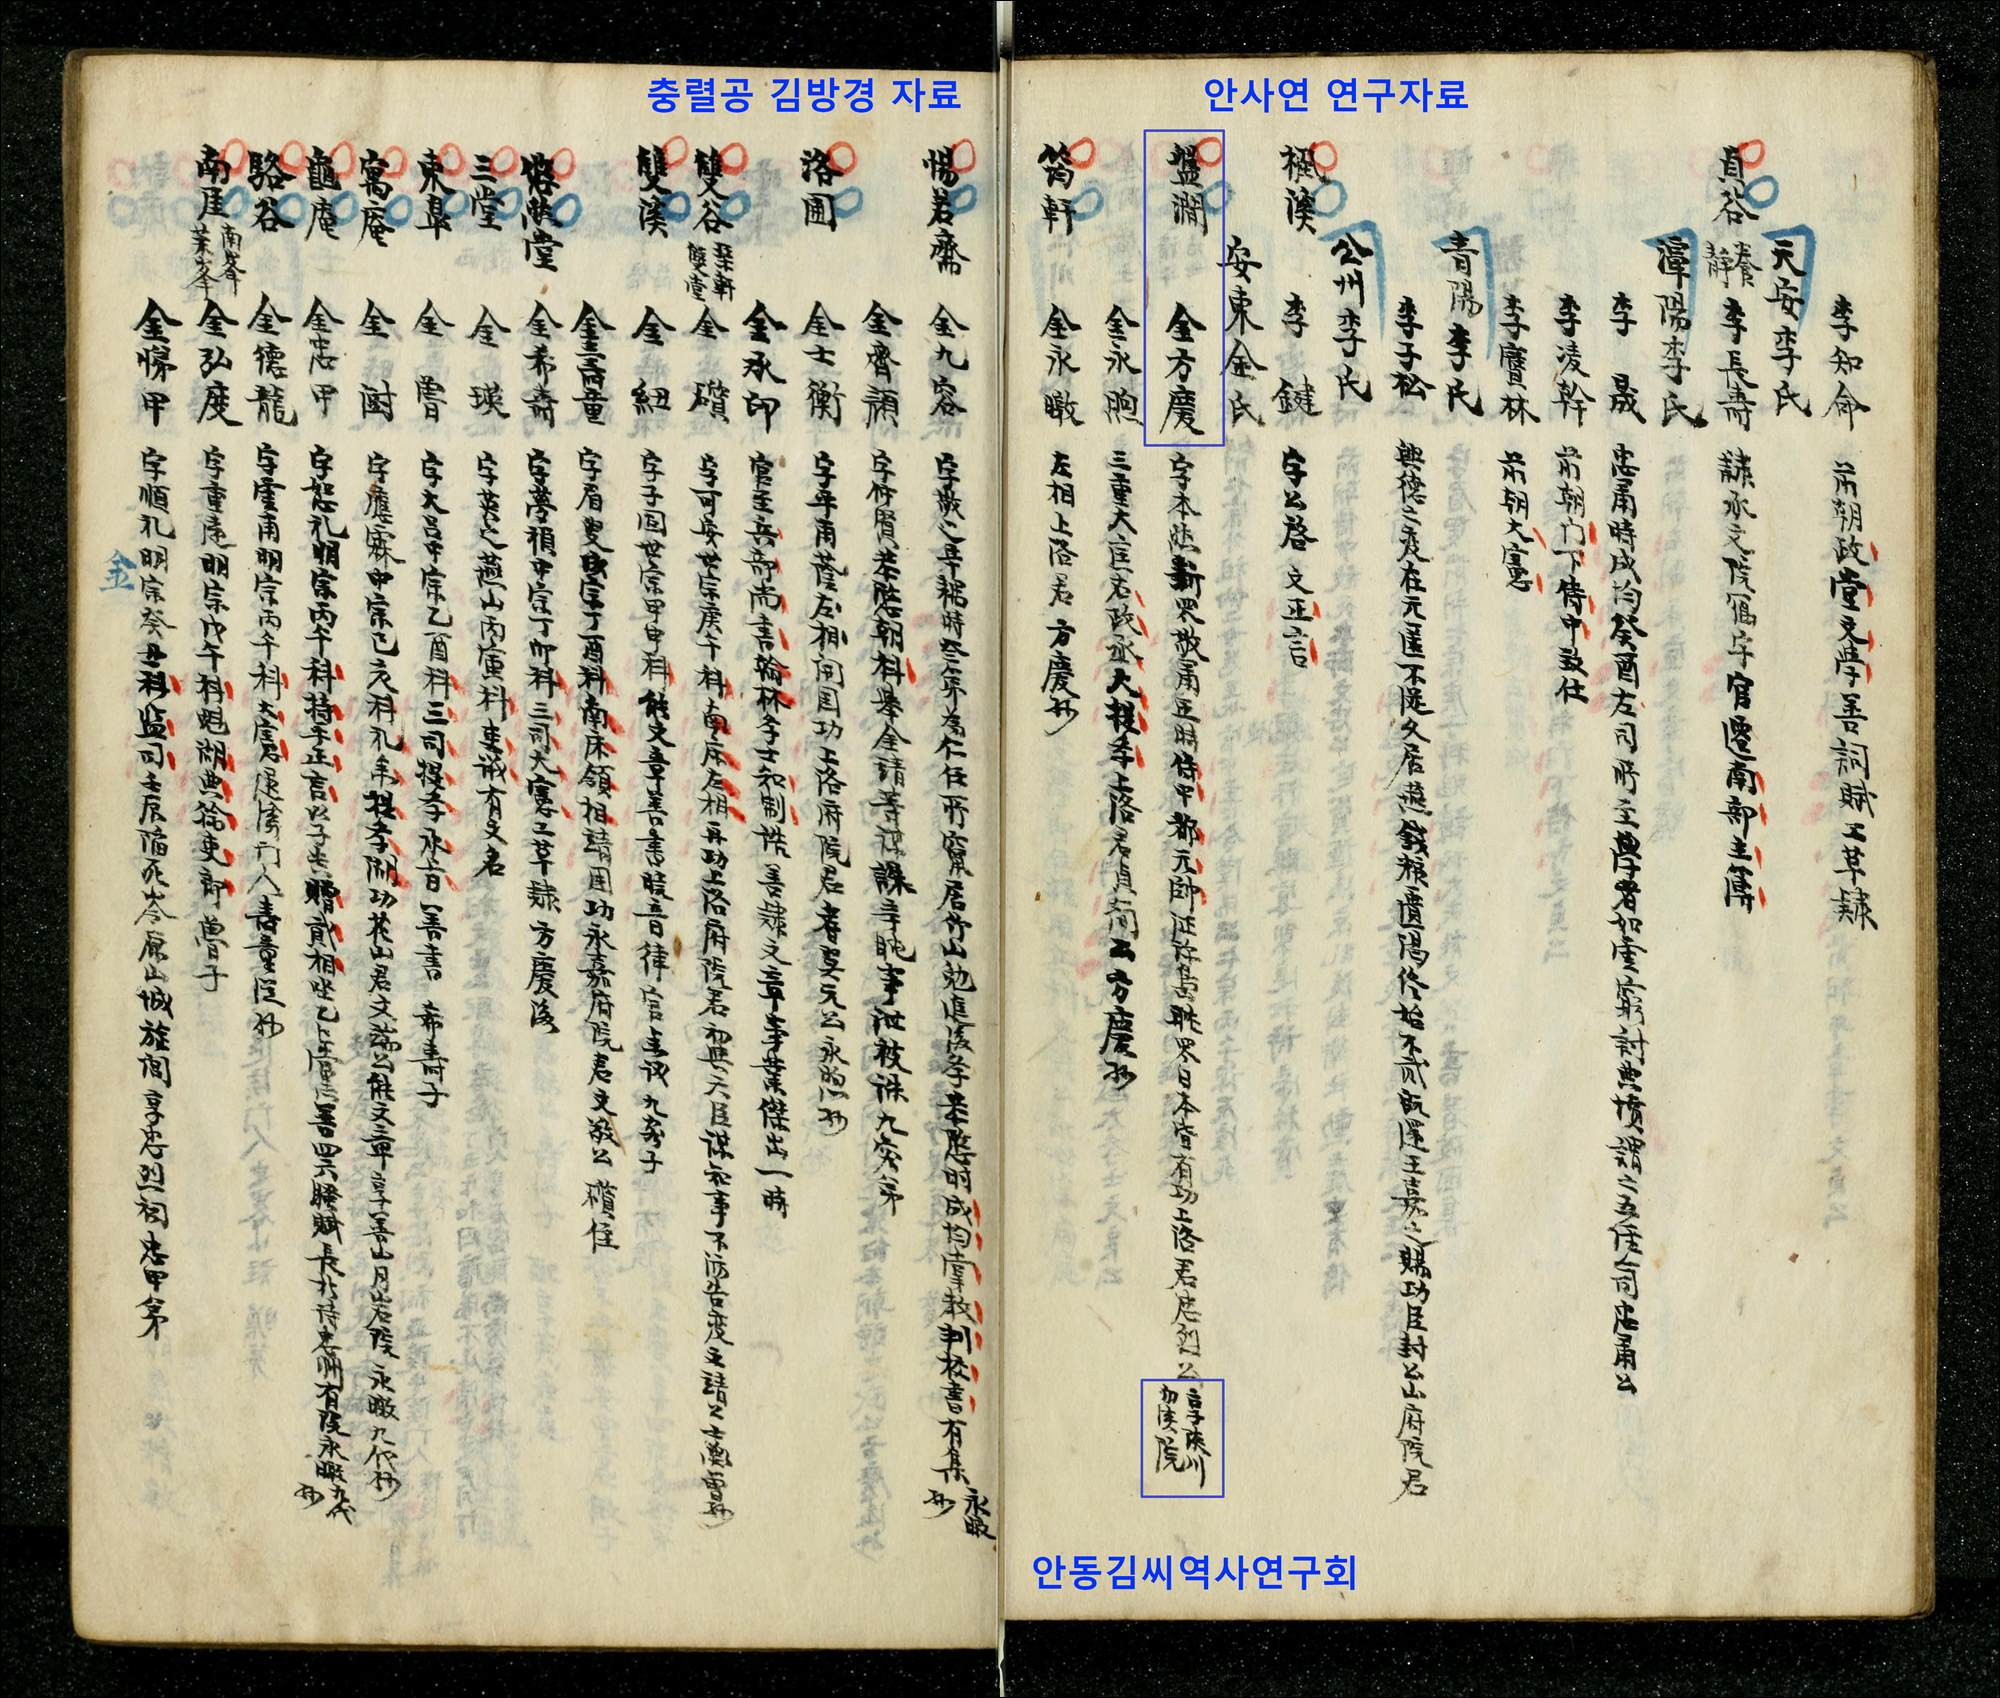 충렬공 김방경 자료
안사연 연구자료
李知命 前朝政堂文學善詞賦工草隷
天安李氏
貞谷 養靜 李長壽 隷承文院寫字官遷南部主簿
潭陽李氏
李晟 忠肅時成均癸酉左司 學者如雲 討典墳謂之五經笥忠肅公
李凌幹 前朝門下侍中致仕
李賚林 前朝大憲
靑陽李氏
李子松 興德之變在元匿不從久居燕錢粮遺渴終始不貳 還王嘉之賜功臣封公山府院君
公州李氏
楓溪 李鍵 字公啓 文正言
安東金氏
盤澗 金方慶 字本然新羅敬甫 時侍中都元帥征 日本皆有功上洛君忠烈公 享陜川 院
金永煦 三重大匡右政丞大提學上洛君貞簡公方慶孫
筠軒 金永暾 左相上洛君方慶孫
惕若齋 金九容 字敬之 居竹山 後 恭愍時成均 敎判校書有集 永暾孫
金齊顔 字仲賢恭愍朝科 金 等謀誅辛旽事泄被誅九容弟
洛圃 金士衡 字平甫 左相 國功上洛府院君 永煦孫
金承印 官至兵部尙書翰林學士知制誥善隷文章事業傑出一時
雙谷 琴軒 雙堂 金礩 字可安世宗庚午科南床左相再功上洛府院君初與六臣謀 事不 告變文靖公士衡曾孫
雙溪 金紐 字子固世宗甲申科能文章善書曉音律官 九容子
金壽童 字眉叟成宗丁酉科南床領相靖國功永嘉府院君文敬公礩侄
悠然堂 金希壽 字夢禎中宗丁卯科三司大憲工草隷方慶後
三堂 金瑛 字英之燕山丙寅科吏議有文名
東皐 金魯 字大呂中宗乙酉科三司提學承旨善書 希壽子
寓庵 金澍 字應霖中宗己亥科礼參提學湖功花山君文端公能文章享善山月岩院 永暾九代孫
龜庵 金忠甲 字恕礼明宗丙午科持平正言以子 贈貳相 善四六騈賦長於詩忠州有院永暾九代孫
駱谷 金德龍 字雲甫明宗丙午科大憲退溪門人壽童 孫
南厓 南峯 茱峯 金弘度 字重遠明宗戊午科魁湖典翰吏郎 魯子
金悌甲 字順礼明宗癸丑科監司壬辰陷死 原山城旌閭享忠烈祠忠甲弟
金
안동김씨역사연구회